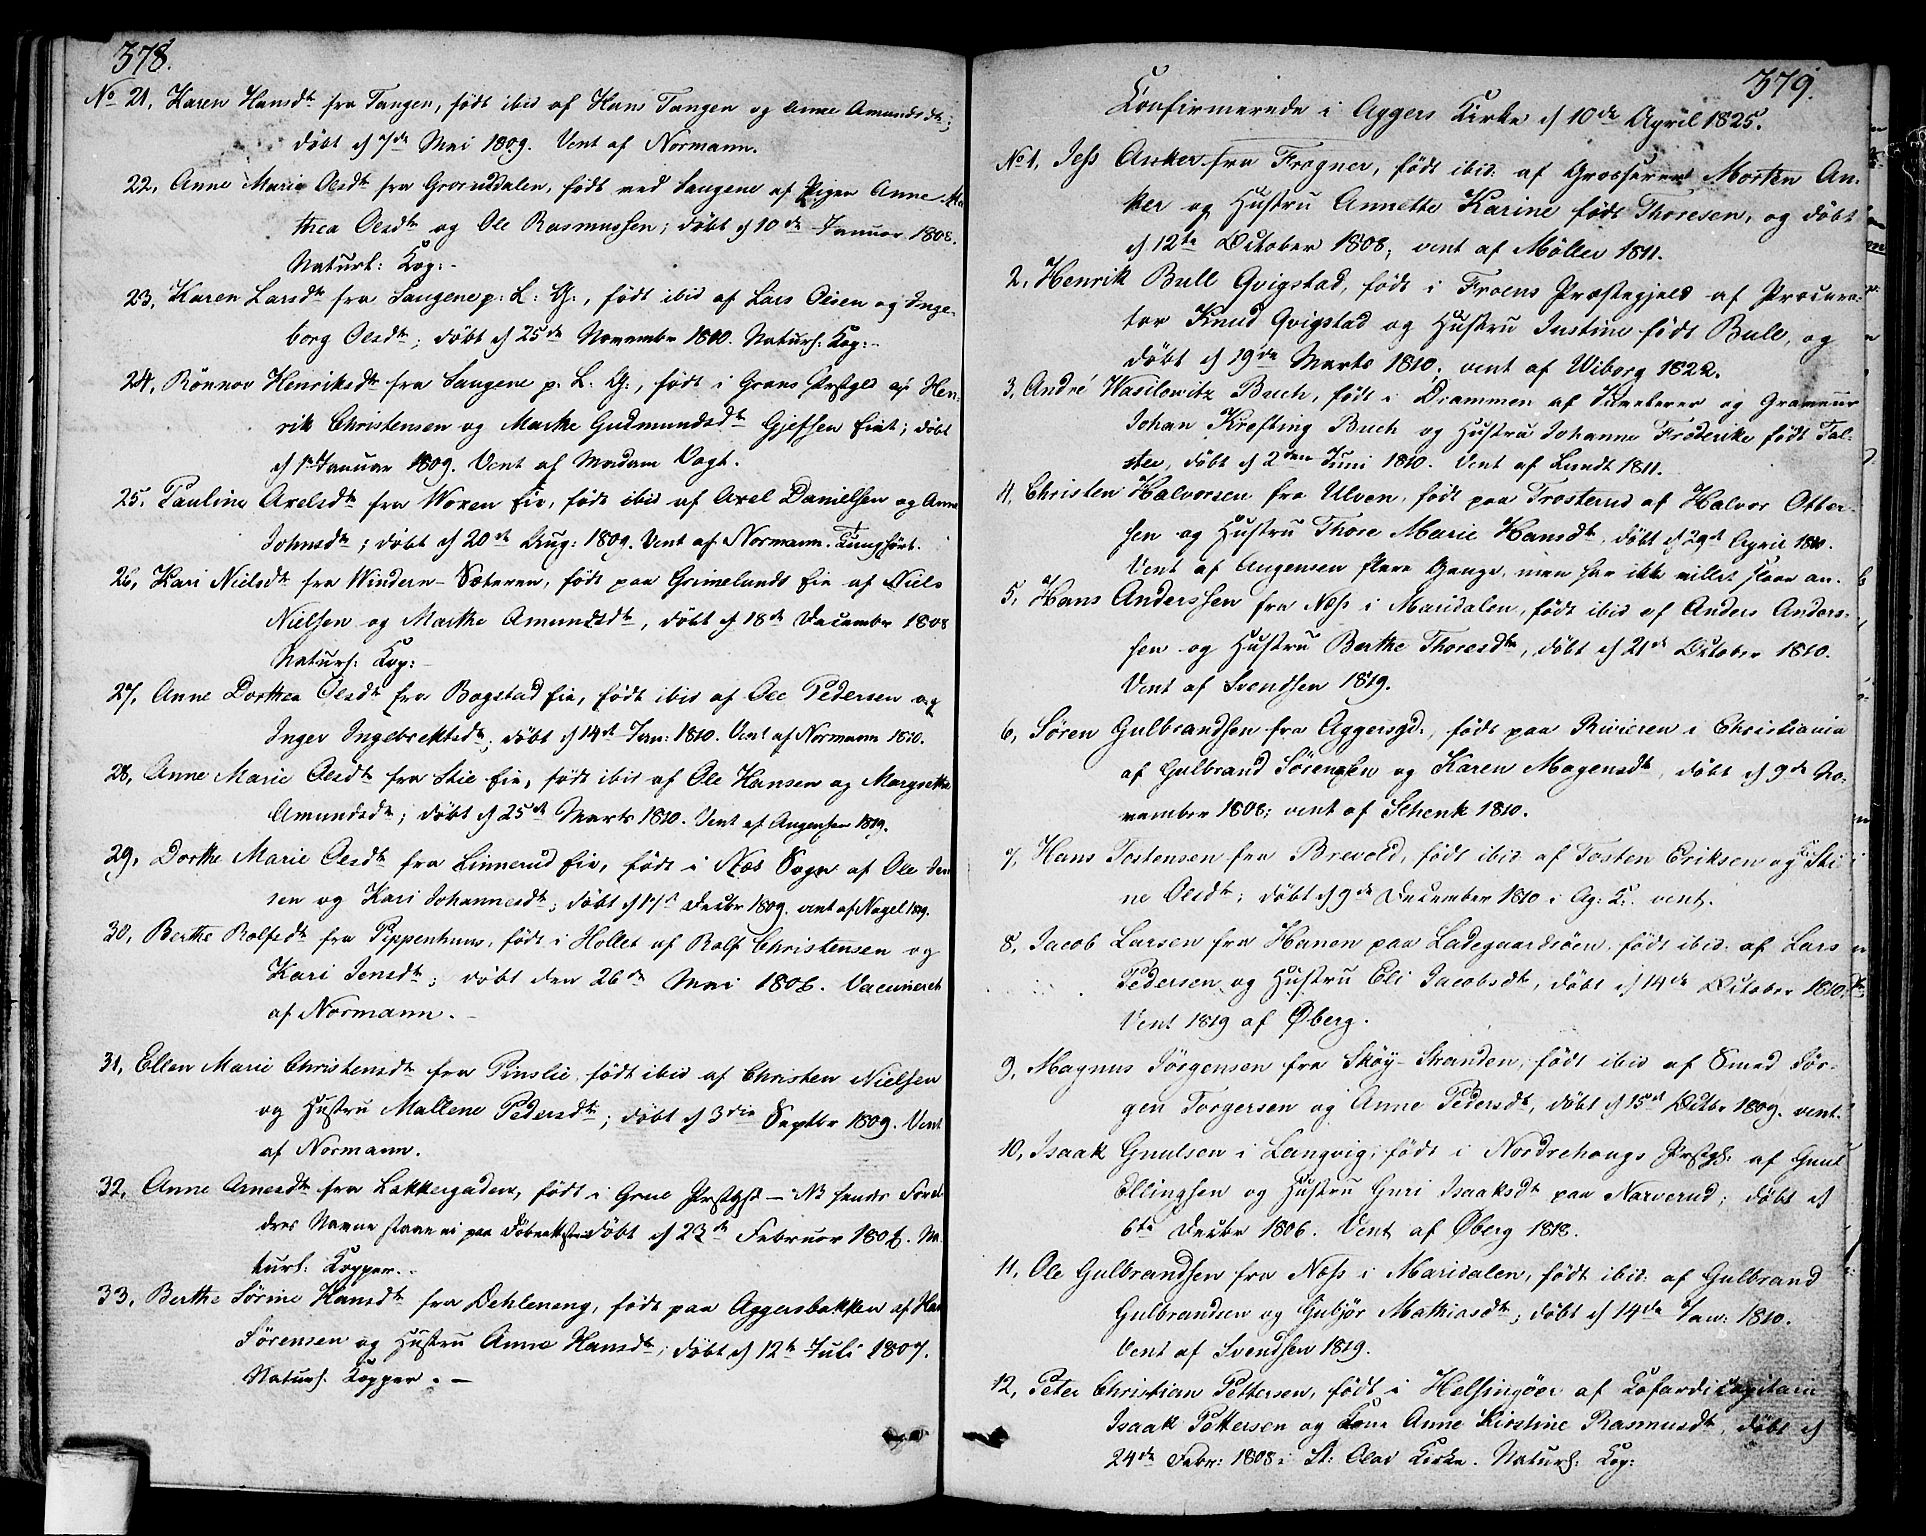 378.
No 21, Karen Hansdt fra Tangen, født ibid af Hans Tangen og Anne Amundsdt;
døbt d 7de Mai 1809. Vent af Normann.
22, Anne Marie Olsdt fra Grorudddalen, født ved Saugene af Pigen Anne Ma
thea Olsdt og Ole Rasmussen; døbt d 10de Januar 1808.
Naturl: Kop:-
23, Karen Larsdt fra Saugene p: L: G:, født ibid af Lars Olsen og Inge-
borg Olsdt; døbt d 25de November 1810. Naturl: Kop:-
24, Rönnov Henriksdt fra Saugene p: L: G:, født i Grans Prstgld af Hen-
rik Christensen og Marthe Gudmundsdt Gjefsen Eiet; døbt
d 1ste Januar 1809. Vent af Madam Vogt.
25, Pauline Axelsdt fra Woxen Eie, født ibid af Axel Danielsen og Anne
Johnsdt; døbt d 20de Aug: 1809. Vent af Normann. Tunghört.
26, Kari Nielsdt fra Windern-Sæteren, født paa Grimelunds Eie af Niels
Nielsen og Marthe Amundsdt, døbt d 18de December 1808
Naturl: Kop:-
27, Anne Dorthea Olsdt fra Bogstad Eie, født ibid af Ole Pedersen og
Inger Ingebrektsdt; døbt d 14de Jan: 1810. Vent af Normann 1810.
28, Anne Marie Olsdt fra Stie Eie, født ibid af Ole Hansen og Margrethe
Amundsdt; døbt d 25de Marts 1810. Vent af Angensen 1819.
29, Dorthe Marie Olsdt fra Linnerud Eie, født i Næs Sogn af Ole Jen
sen og Kari Johannesdt; døbt d 17de Decbr 1809. vent af Nagel 1819.
30, Berthe Rolfsdt fra Pippenhuus, født i Hollet af Rolf Christensen og
Kari Jensdt; døbt den 26de Mai 1806. Vaccineret
af Normann.-
31, Ellen Marie Christensdt fra Pinslie, født ibid af Christen Nielsen
og Hustru Mallene Pedersdt; døbt d 3die Septbr 1809. Vent
af Normann.
32, Anne Arnesdt fra Lakkergaden, født i Grue Prstgld - NB hendes Foræl
dres Navne staae ei paa Døbeattesten døbt d 23de Februar 1806. Na
turl: Kopper.-
33, Berthe Sørine Hansdt fra Dehleneng, født paa Aggersbakken af Hans
Sørensen og Hustru Anne Hansdt; døbt d 12te Juli 1807.
Naturl: Kopper.-
379.
Konfirmerede i Aggers Kirke d 10de April 1825.
No 1, Jess Anker fra Frogner, født ibid: af Grosserer Morten An-
ker og Hustru Annette Karine født Thoresen, og døbt
d 12te October 1808; vent af Møller 1811.
2, Henrik Bull Qvigstad, født i Froens Præstegjeld af Procura-
tor Knud Qvigstad og Hustru Justine født Bull, og
døbt d 19de Marts 1810. vent af Wiborg 1822.
3, André Wasilowitz Buch, født i Drammen af Juveleerer og Graveur
Johan Krefting Buch og Hustru Johanne Frederike født Fal-
ster, døbt d 2den Juni 1810. Vent af Lundt 1811.
4, Christen Halvorsen fra Ulven, født paa Trosterud af Halvor Otter-
sen og Hustru Thore Marie Hansdt, døbt d 29de April 1810.
Vent af Angensen flere Gange, men har ikke villet slaae an.
5, Hans Anderssen fra Næss i Maridalen, født ibid af Anders Anders-
sen og Hustru Berthe Thoresdt, døbt d 21de October 1810.
Vent af Svendsen 1819.
6, Søren Gulbrandsen fra Aggersgd:, født paa Rivieren i Christiania
af Gulbrand Sørensen og Karen Mogensdt, døbt d 9de No-
vember 1808; vent af Schenk 1810.
7, Hans Tostensen fra Brevold, født ibid af Tosten Eriksen og Sti
ne Olsdt; døbt d 9de December 1810 i Ag: K:. vent.
8, Jacob Larsen fra Hanen paa Ladegaardsöen, født ibid: af Lars
Pedersen og Hustru Eli Jacobsdt, døbt d 14de October 1810.
Vent 1819 af Øberg.
9, Magnus Jörgensen fra Sköy-Stranden, født ibid af Smed Jör-
gen Torgersen og Anne Pedersdt, døbt d 15de Octbr 1809. vent.
10, Isaak Gnulsen i Langvig, født i Nordrehougs Prstgl: af Gnul
Ellingsen og Hustru Guri Isaaksdt paa Narverud; døbt d
6te Decbr 1806. Vent af Øberg 1818.
11, Ole Gulbrandsen fra Næss i Maridalen, født ibid: af Gulbrand
Gulbrandsen og Gubjör Mathiasdt; døbt d 14de Jan: 1810.
Vent af Svendsen 1819.
12, Peter Christian Pettersen, født i Helsingöer af Kofardicapitain
Isaak Pettersen og Kone Anne Kirstine Rasmusdt, døbt d
24de Febr: 1808 i St: Olai Kirke. Naturl: Kop: